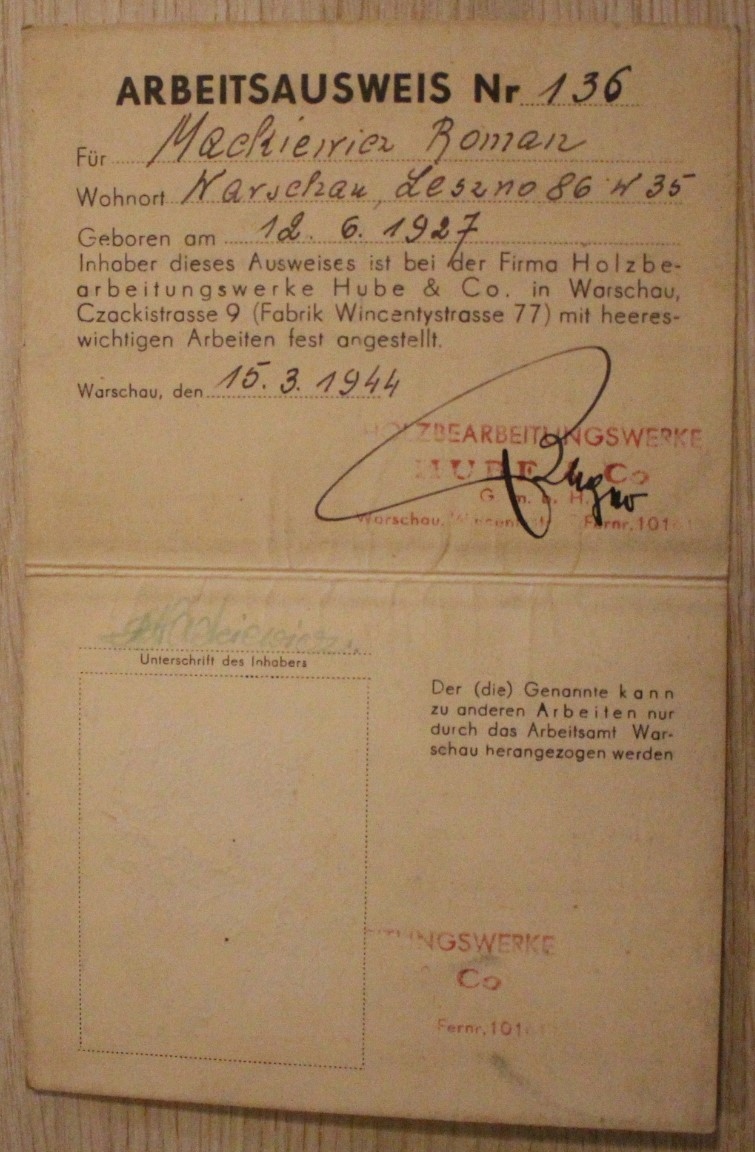 ARBEITSAUSWEIS Nr 136
Für Mackiewicz Roman
Wohnort Warschau, Leszno 86 W 35
Geboren am 12. 6. 1927
Inhaber dieses Ausweises ist bei der Firma Holzbe-
arbeitungswerke Hube & Co. in Warschau,
Czackistrasse 9 (Fabrik Wincentystrasse 77) mit heeres-
wichtigen Arbeiten fest angestellt.
Warschau, den 15. 3. 1944
HOLZBEARBEITUNGSWERKE
HUBE & Co
G. m. b. H.
Warschau, Fernr. 101
Mackiewicz
Unterschrift des Inhabers
Der (die) Genannte kann
zu anderen Arbeiten nur
durch das Arbeitsamt War-
schau herangezogen werden
ITUNGSWERKE
Co
Fernr. 101